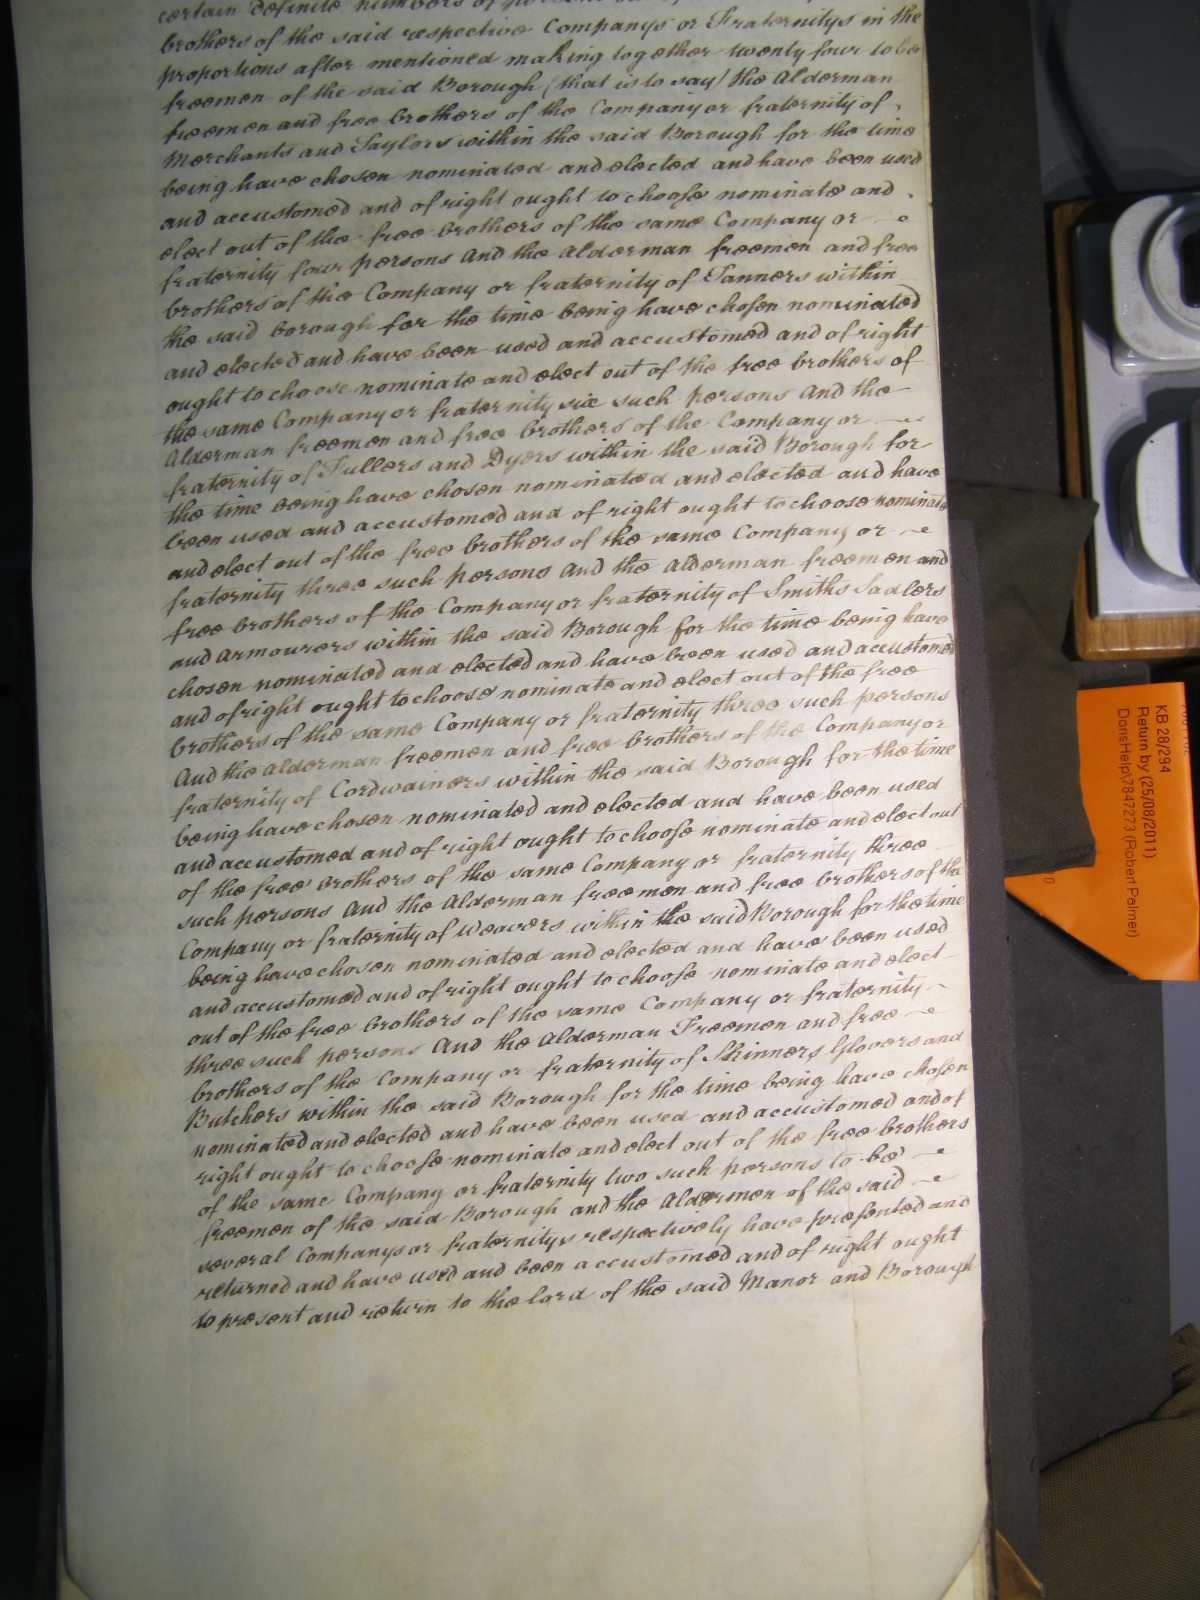 certain definite numbers of
brothers of the said respective Companys or Fraternitys in the
proportions after mentioned making together twenty four to be
freemen of the said Borough (that is to say) the Alderman
freemen and free brothers of the Company or fraternity of
Merchants and Taylors within the said Borough for the time
being have chosen nominated and elected and have been used
and accustomed and of right ought to choose nominate and
elect out of the free brothers of the same Company or
fraternity four persons And the Alderman freemen and free
brothers of the Company or fraternity of Tanners within
the said borough for the time being have chosen nominated
and elected and have been used and accustomed and of right
ought to choose nominate and elect out of the free brothers of
the same Company or fraternity six such persons And the
Alderman freemen and free brothers of the Company or
fraternity of Fullers and Dyers within the said Borough for
the time being have chosen nominated and elected and have
been used and accustomed and of right ought to choose nominate
and elect out of the free brothers of the same Company or
fraternity three such persons And the Alderman freemen and
free brothers of the Company or fraternity of Smiths Sadlers
and Armourers within the said Borough for the time being have
chosen nominated and elected and have been used and accustomed
and of right ought to choose nominate and elect out of the free
brothers of the same Company or fraternity three such persons
And the Alderman freemen and free brothers of the Company or
fraternity of Cordwainers within the said Borough for the time
being have chosen nominated and elected and have been used
and accustomed and of right ought to choose nominate and elect out
of the free brothers of the same Company or fraternity three
such persons And the Alderman freemen and free brothers of the
Company or fraternity of Weavers within the said Borough for the time
being have chosen nominated and elected and have been used
and accustomed and of right ought to choose nominate and elect
out of the free brothers of the same Company or fraternity
three such persons And the Alderman Freemen and free
brothers of the Company or fraternity of Skinners Glovers and
Butchers within the said Borough for the time being have chosen
nominated and elected and have been used and accustomed and of
right ought to choose nominate and elect out of the free brothers
of the same Company or fraternity two such persons to be
freemen of the said Borough and the Aldermen of the said
several Companys or fraternitys respectively have presented and
returned and have used and been accustomed and of right ought
to present and return to the lord of the said Manor and Borough
KB 28/294
Return by (25/08/2011)
DorisHelp\7847273 (Robert Palmer)